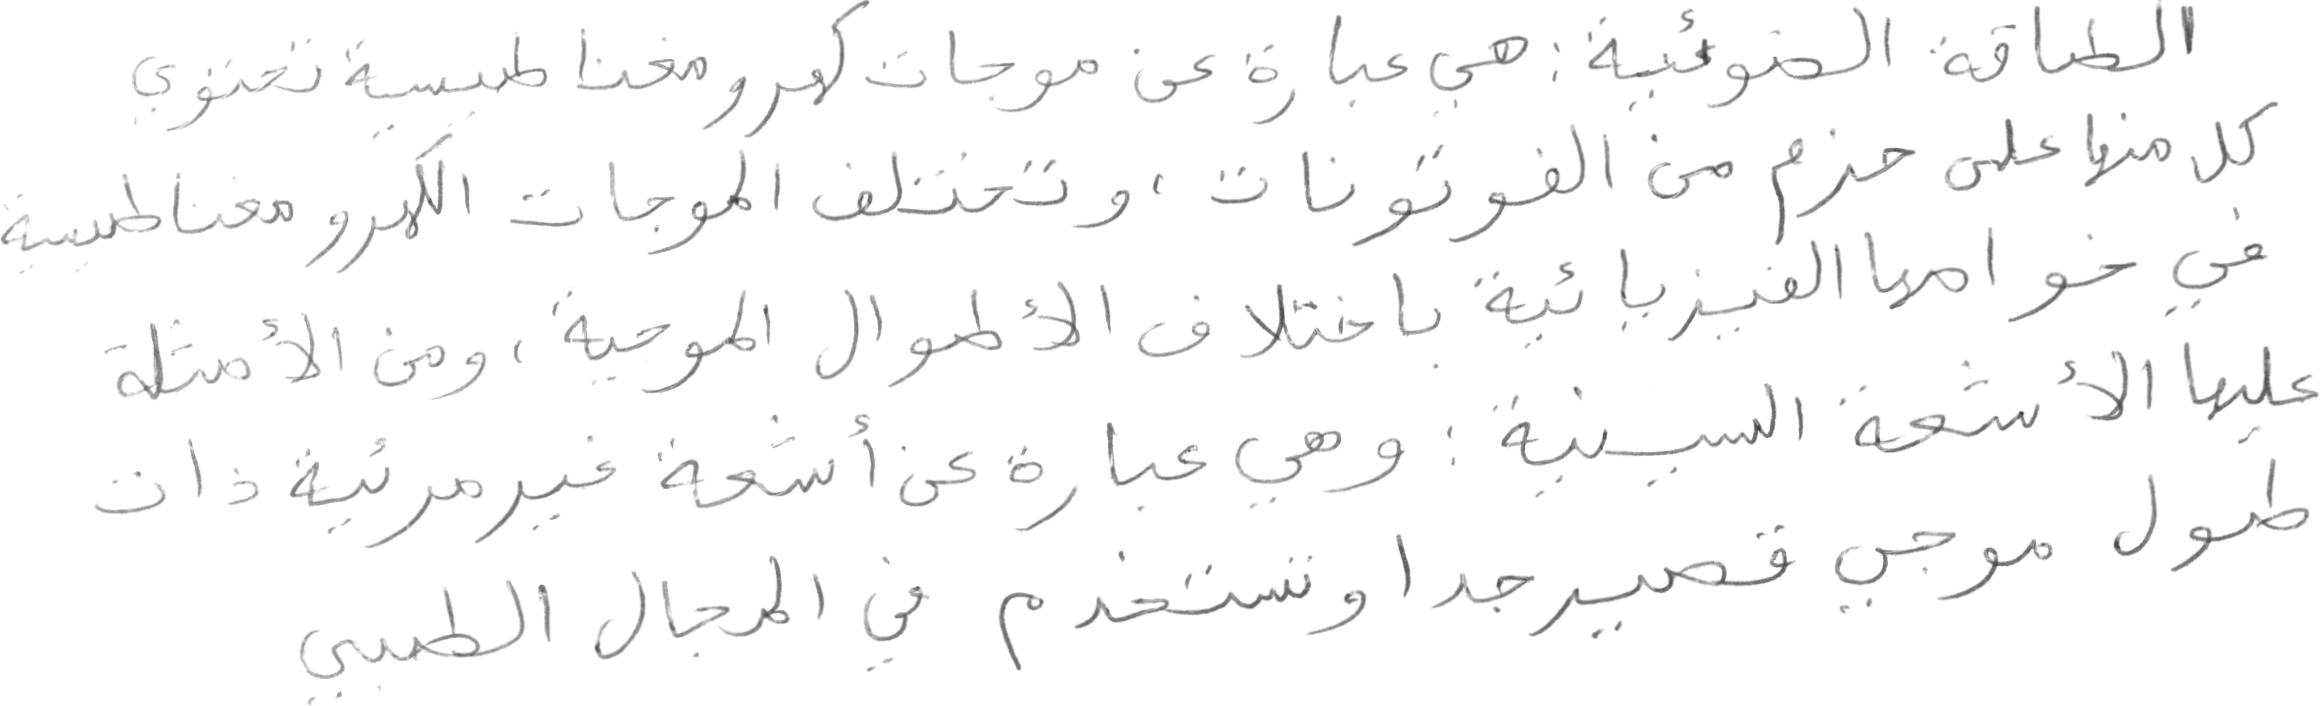 الطاقة الضوئية : هي عبارة عن موجات كهرومغناطيسية تحتوي
كل منها على حزم من الفوتونات ، وتختلف الموجات الكهرومغناطيسية
في خواصها الفيزيائية باختلاف الأطوال الموجية ، ومن الأمثلة
عليها الأشعة السينية : وهي عبارة عن أشعة غير مرئية ذات
طول موجي قصير جدا وتستخدم في المجال الطبي